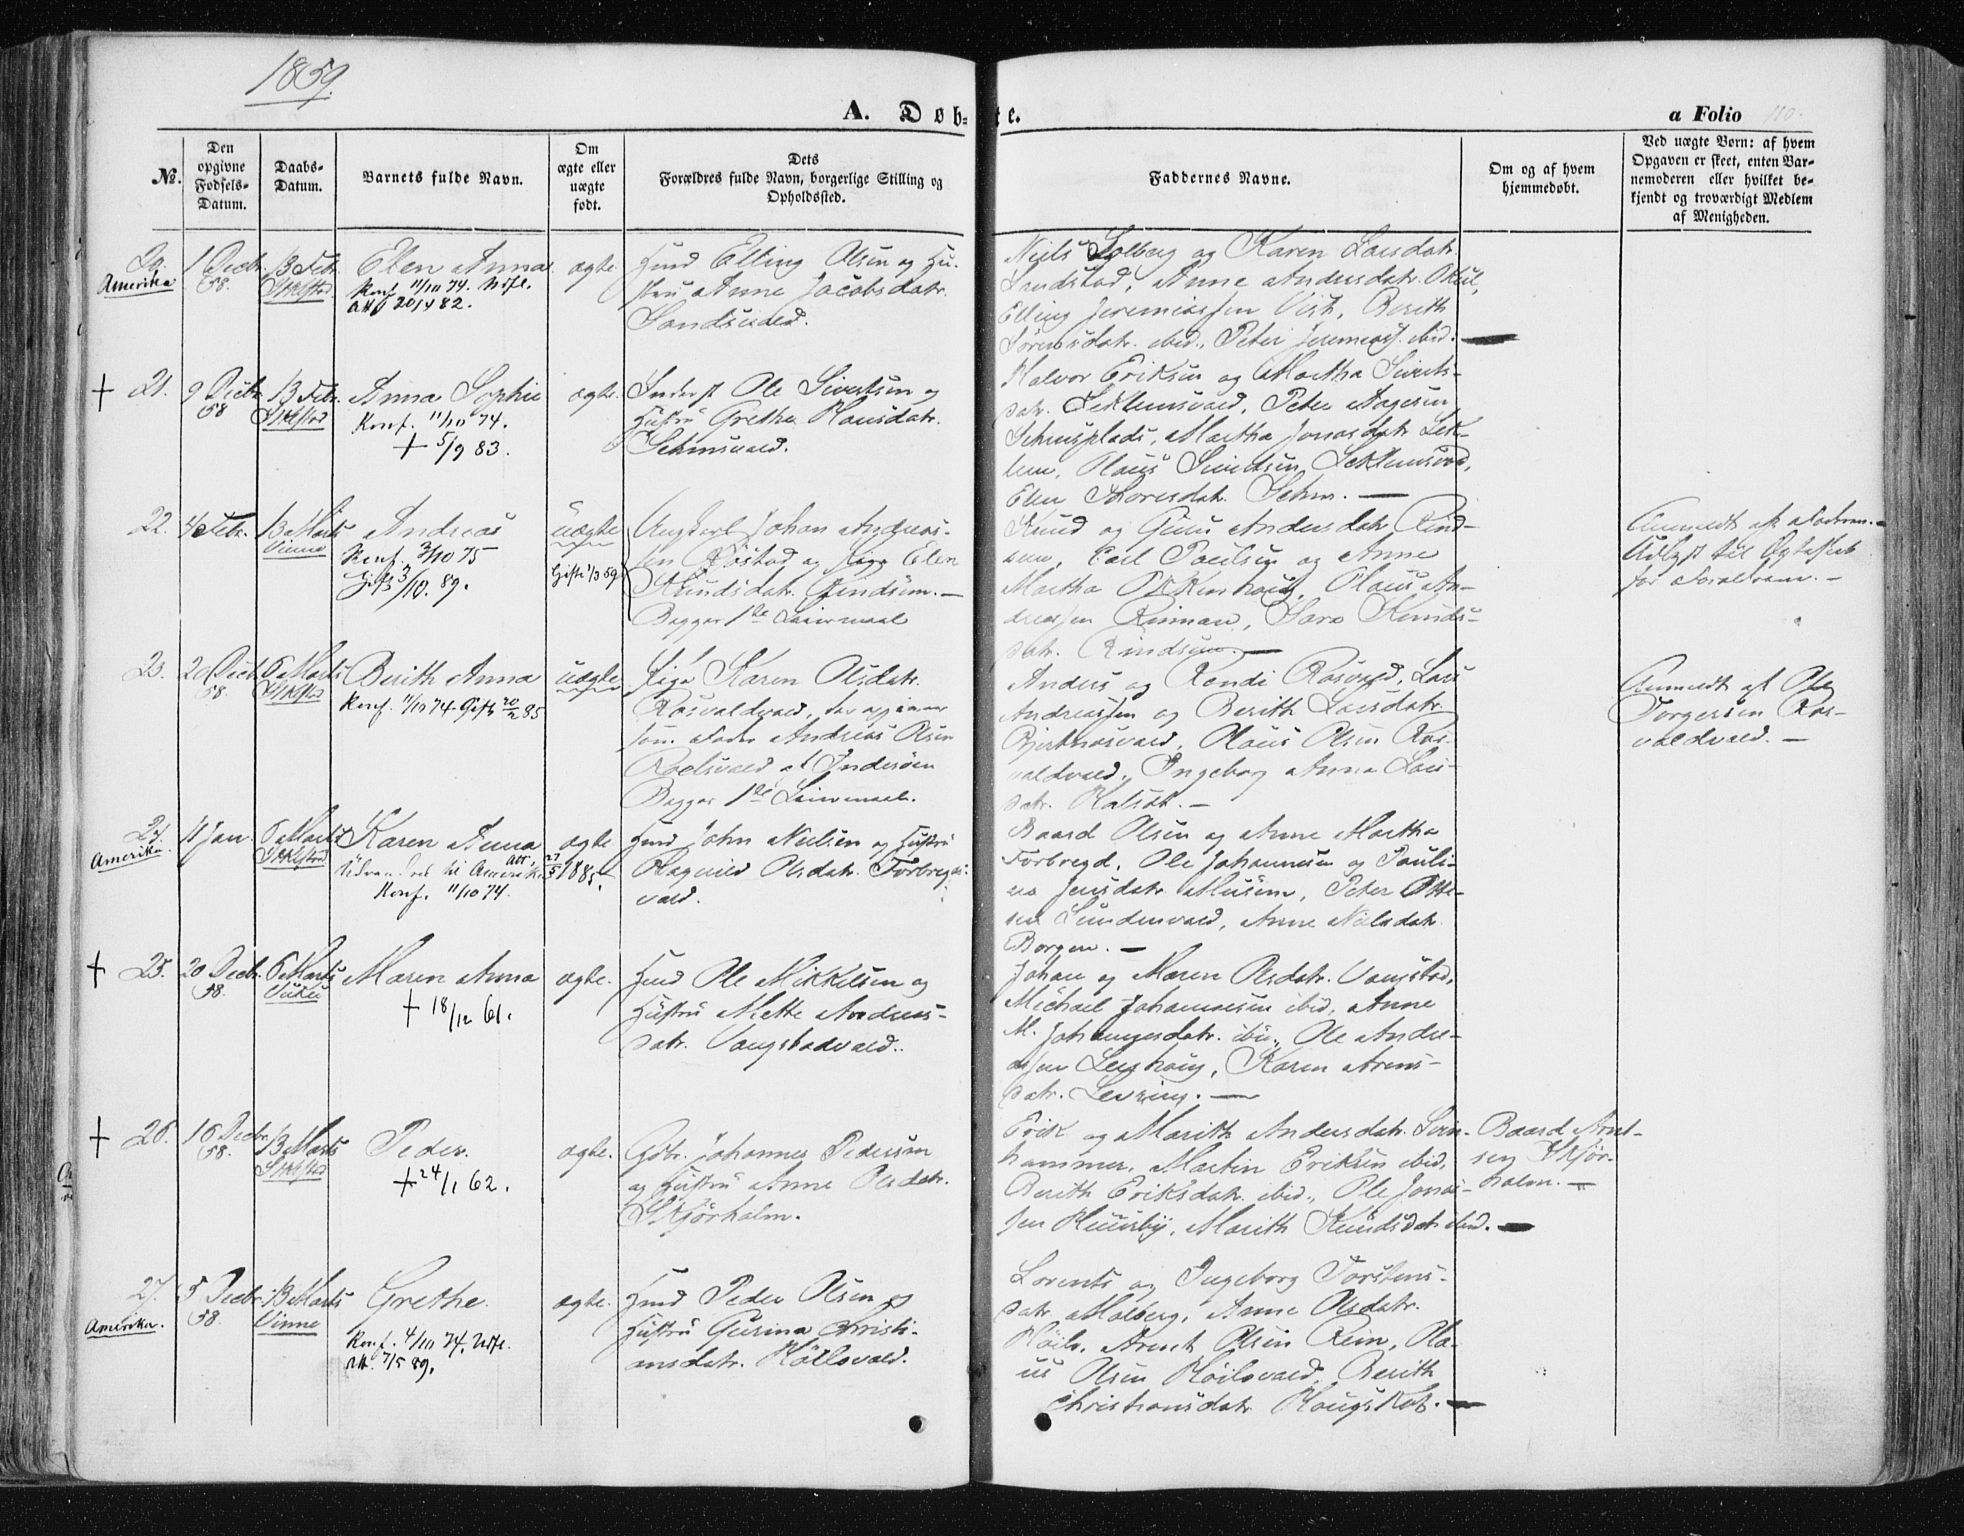 1859.
A. Døbte.
a Folio 110.
No.
Den opgivne Fødsels-Datum.
Daabs-Datum.
Barnets fulde Navn.
Om ægte eller uægte født.
Dets Forældres fulde Navn, borgerlige Stilling og Opholdssted.
Faddernes Navne.
Om og af hvem hjemmedøbt.
Ved uægte Børn: af hvem Opgaven er skeet, enten Barnemoderen eller hvilket bekjendt og troværdigt Medlem af Menigheden.
20.
Amerika
1 Decbr. 58.
13 Febr.
Elen Anna
Konf. 11/10 74.
att 20/4 82.
ægte.
Huusd Elling Olsen og Hu-
stru Anne Jacobsdatr.
Niels Solberg og Karen Larsdatr.
Sundstad, Anne Andersdatr.
Elling Jeremiassen Vist, Berith
Sørensdatr. ibid., Peter Jeremiass. ibid.
+ 21.
9 Decbr 58
13 Febr.
Anna Sophie
Konf. 11/10 74.
+ 5/9 83.
ægte.
Inderst Ole Sivertsen og
Hustru Grethe Hansdatr.
Halvor Eriksen og Martha Siverts-
datr. Leklemsvald, Peter Aagesen
Martha Jonasdatr. Lek-
lem, Olaus Sivertsen Leklemsvald,
Elen Thoresdatr. Selem.
22.
4 Febr.
13 Marts
Vinne
Andreas
Konf. 3/10 75
Gift 3/10. 89.
uægte
Gifte 1/3 59
Ungkarl Johan Andreas-
sen Røstad og Pige Elen
Knudsdatr. Rindsem.
Begges 1ste Leiermaal
Knud og Guru Andersdatr. Rind-
sem, Carl Paulsen og Anne
Martha Okkenhaug, Olaus An-
dreassen Rinnan, Sara Knuds-
datr. Rindsem.
Anmeldt af Faderen.
Udlyst til Ægteskab
for Forældrene.
23.
20 Decbr. 58.
6 Marts
Berith Anna
Konf. 11/10 74 Gift 20/2 85
uægte
Pige Karen Olsdatr.
Rosvoldvald, der opgiver
som Fader Andreas Olsen
Roelsvald af Inderøen
Begges 1ste Leiermaal.
Anders og Randi Rosvold, Lars
Andreassen og Berith Larsdatr.
Bjertnæsvald, Olaus Olsen Ros-
voldvald, Ingeborg Anna Lars-
datr.
Anmeldt af Ole
Torgersen Ros-
voldvald.
24.
Amerika.
11 Jan.
6 Marts
Karen Anna
Udvandret til Amerika att. 27/5 1885.
Konf. 11/10 74.
ægte
Huusd John Nielsen og Hustru
Ragnild Olsdatr. Forbregds-
vald.
Baard Olsen og Anne Martha
Forbregd, Ole Johannesen og Pauli-
na Jensdatr. Musem, Peter Otte-
sen Sundenvald, Anne Nielsdatr.
Borgen.
+ 25.
20 Decbr. 58.
6 Marts
Vuku
Maren Anna
+ 18/12 61.
ægte.
Huusd Ole Mikkelsen og
Hustru Mette Andreas-
datr. Vangstadvald.
Johan og Maren Olsdatr. Vangstad,
Michael Johannesen ibid, Anne
M. Johannesdatr. ibid., Ole Andre-
assen Levhaug, Karen Arens-
datr. Levring.
+ 26.
16 Decbr. 58.
13 Marts
Peder.
+ 24/1 62.
ægte.
Gdbr. Johannes Pedersen
og Hustru Anne Olsdatr.
Skjørholm.
Erik og Marith Andersdatr. Svin-
hammer, Martin Eriksen ibid,
Berith Eriksdatr. ibid., Ole Jonas-
sen Huusby, Marith Knudsdatr. ibid.
Baard Arnt-
sen Skjør-
holm.
27.
Amerika.
5 Decbr. 58.
13 Marts
Vinne
Grethe.
Konf. 4/10 74.
att. 7/5 89.
ægte.
Huusd Peder Olsen og
Hustru Gurina Christi-
ansdatr. Høilovald.
Lorents og Ingeborg Torstens-
datr. Molberg, Anne Olsdatr.
Høilo, Arnt Olsen Rein, Ola-
us Olsen Høilovald, Berith
Christiansdatr.